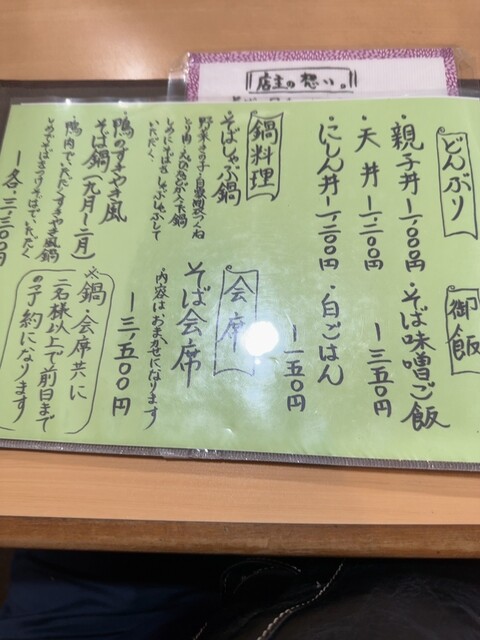 店主の想い。
どんぶり
・親子丼 一、一〇〇円
・天丼 一、二〇〇円
・にしん丼 一、二〇〇円
御飯
・そば味噌ご飯
一三五〇円
・白ごはん
一一五〇円
鍋料理
そばしゃぶ鍋
いただく
鴨のすきやき風
そば鍋(九月〜二月)
鴨肉でいただくすきやき風鍋
しめでそばきりうすばでいただく
一各、三、三〇〇円
会席
そば会席
・内容はおまかせになります
一三、五〇〇円
※鍋・会席共に
二名様以上で前日まで
の予約になります